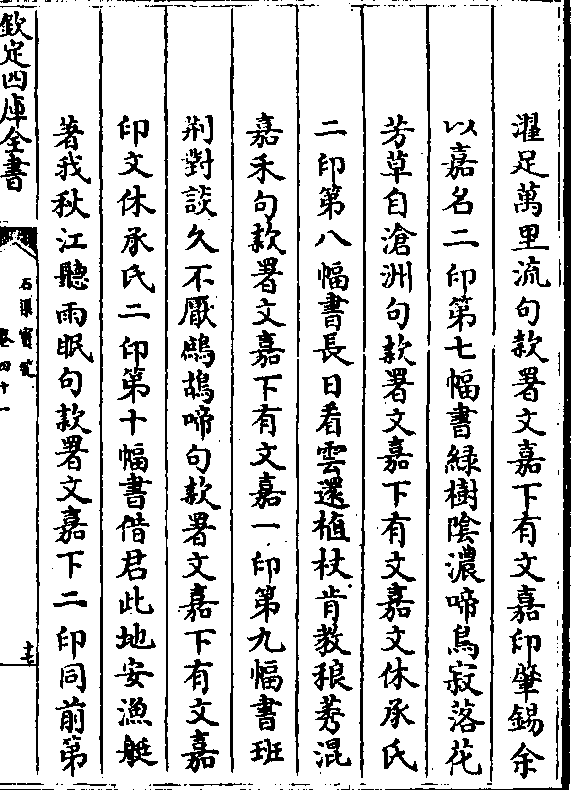 濯足萬里流句款署文嘉下有文嘉印肇錫余
以嘉名二印第七幅書緑樹陰濃啼鳥寂落花
芳草自滄洲句款署文嘉下有文嘉文休承氏
二印第八幅書長日看雲還植杖肯教稂莠混
嘉禾句款署文嘉下有文嘉一印第九幅書班
荆對談久不厭鷓鴣啼句款署文嘉下有文嘉
印文休承氏二印第十幅書借君此地安漁艇
著我秋江聽雨眠句款署文嘉下二印同前第
欽定四庫全書
石渠寳笈
卷四十一